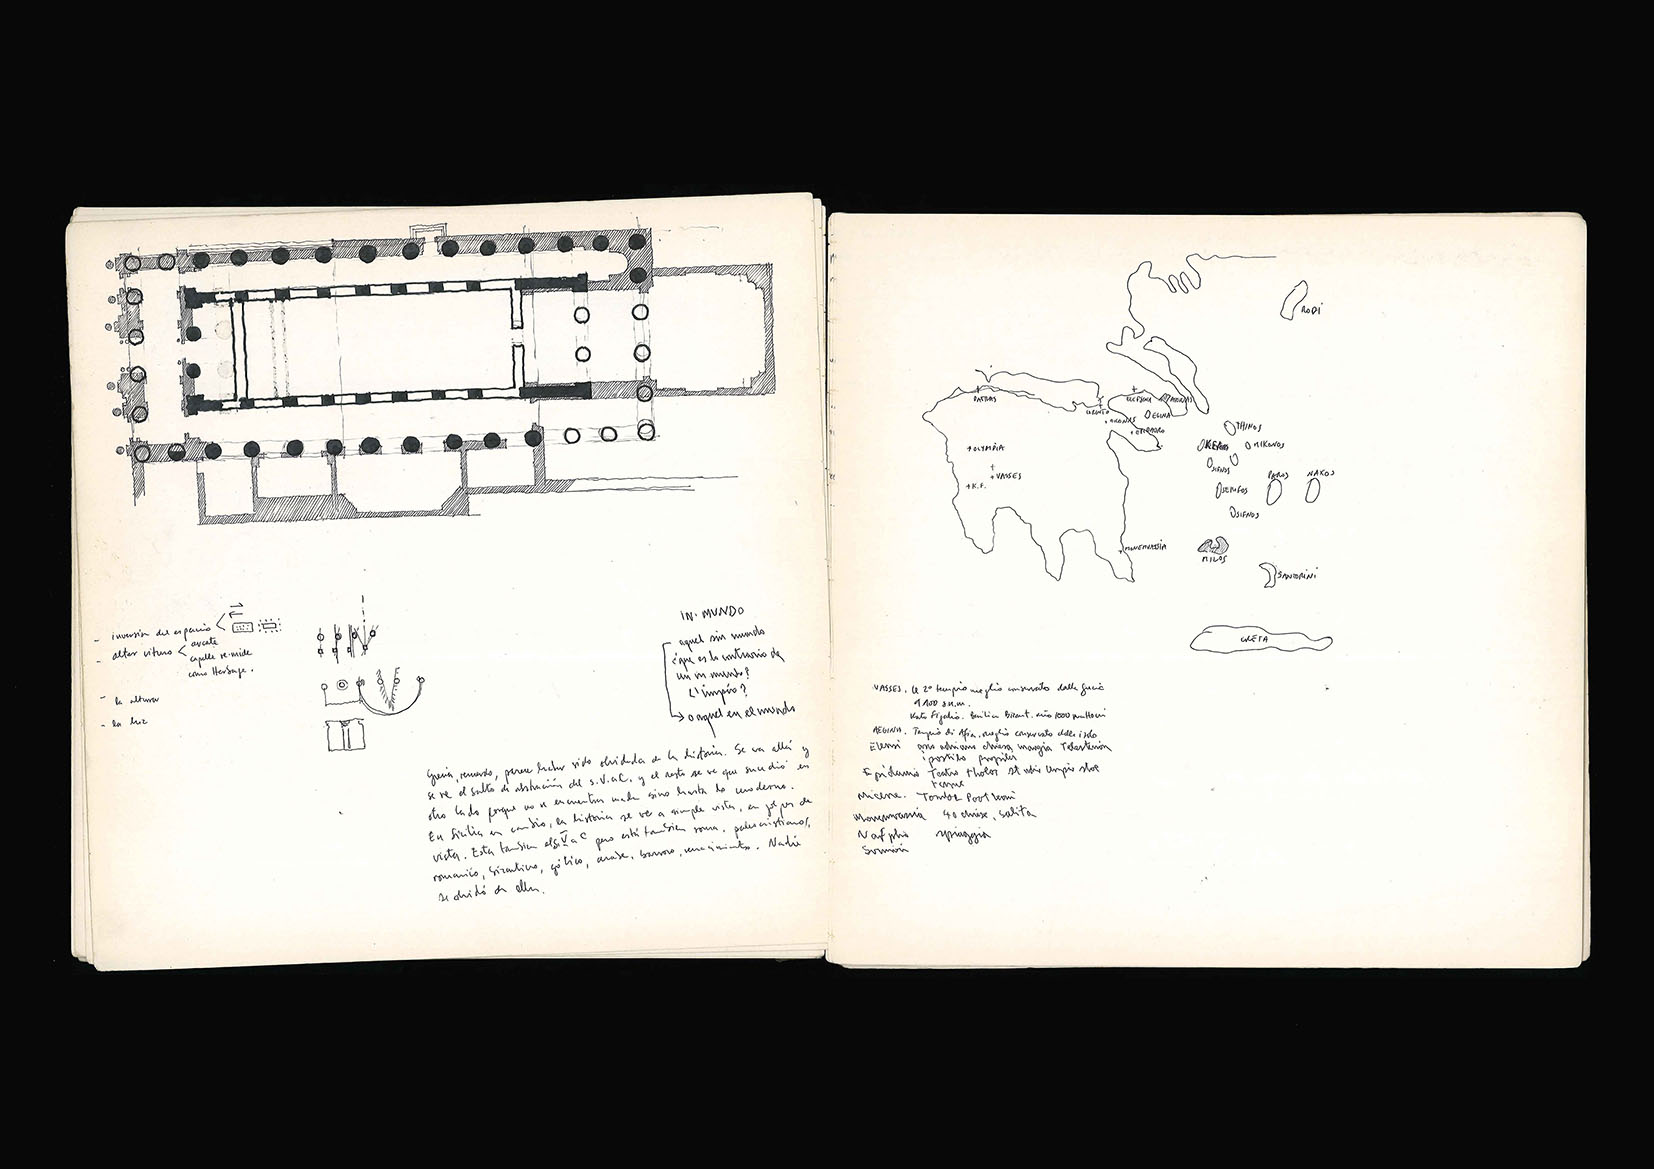 - inversión del espacio
- altar vitreo
avcete
capelle re-mide
como Heritage.
- la altura
- la luz
IN·MUNDO
aquel sin mundo
¿que es lo contrario de
un in mundo?
¿l'impéro?
o aquel en el mundo
Grecia, recuerdo, parece haber sido olvidada de la historia. Se va allá y
se ve el salto di abstración del s.V.a.C. y el resto se ve que sucedió en
otro lado porque no se encuentra nada sino hasta lo moderno.
En Sicilia en cambio, la historia se ve a simple vista, en golpes de
vista. Esta tambien el s V a C pero está tambien roma, paleocristianos,
romanico, bizantino, gótico, arabe, barroco, renacimiento. Nadie
se olvidó de ella.
RODI
PATRAS
CORINTO
ELEFSINA
ATENAS
EGINA
MICENAS
EPIDAURO
+ OLYMPIA
+ VASSES
+ K.F.
+ MONEMVASSIA
THINOS
KEA
MIKONOS
SIFNOS
SERIFOS
PAROS
NAXOS
SIFNOS
MILOS
SANTORINI
CRETA
VASSES. Le 2º tempio meglio conservato della grecia
a 1100 s.n.m.
Kato Figalia. Basilica Bizant. año 1000
AEGINA. Tempio di Afaia. meglio conservato delle isole
Elensi chiesa Telesterion
portico propilei
Epidauro Teatro tholos
Micene. Tombe
Monemvassia 40 chiese, salita
Nafplio spiaggia
Sounion